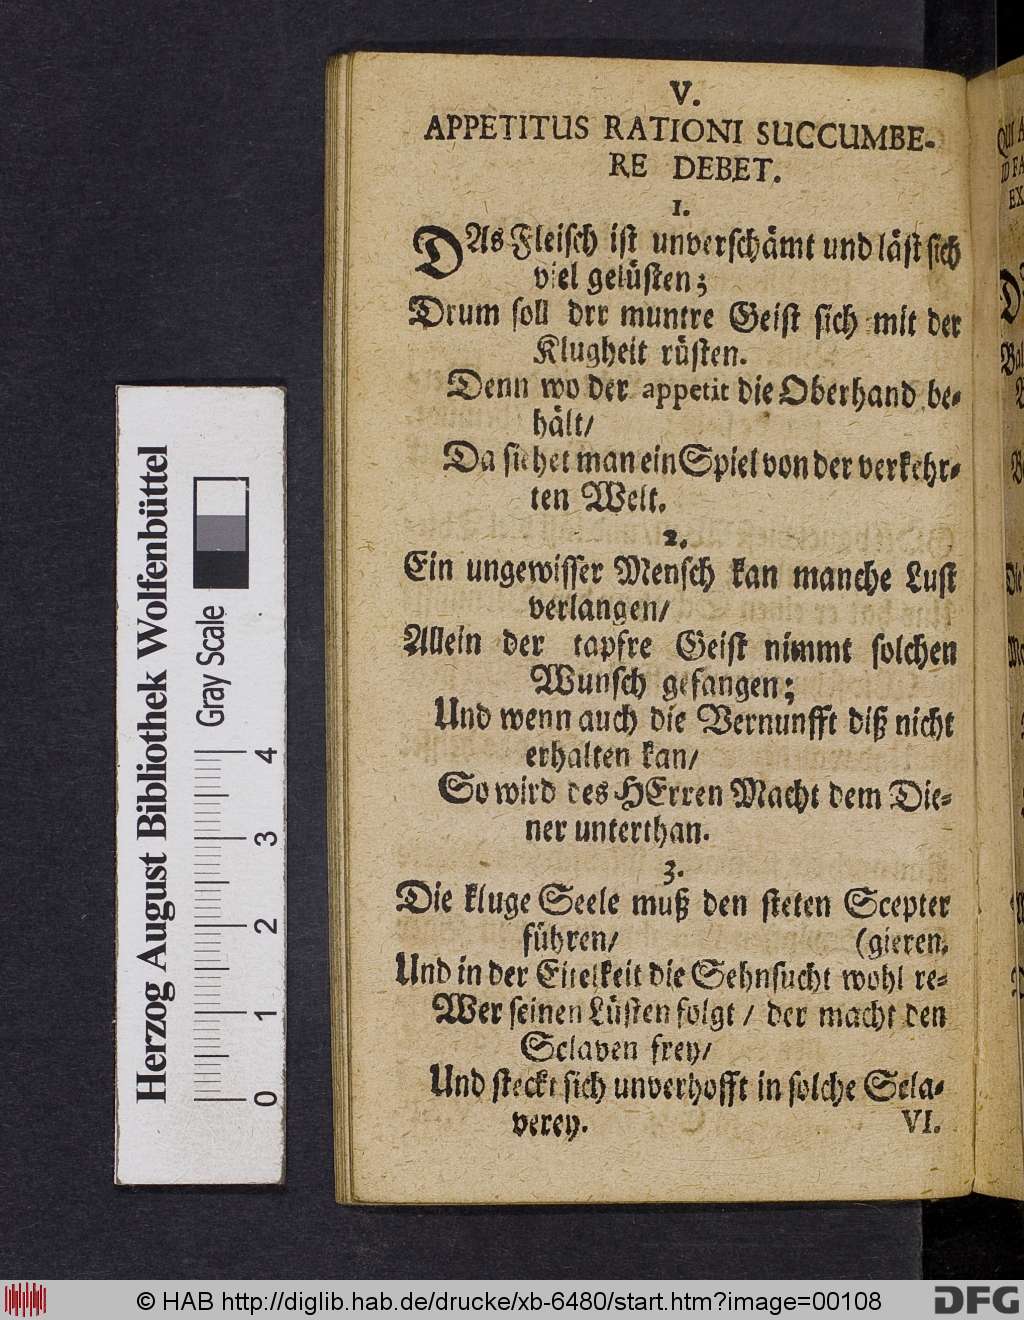 V.
APPETITUS RATIONI SUCCUMBE-
RE DEBET.
1.
DAs Fleisch ist unverschämt und läst sich
viel gelüsten;
Drum soll drr muntre Geist sich mit der
Klugheit rüsten.
Denn wo der appetit die Oberhand be-
hält/
Da siehet man ein Spiel von der verkehr-
ten Welt.
2.
Ein ungewisser Mensch kan manche Lust
verlangen/
Allein der tapfre Geist nimmt solchen
Wunsch gefangen;
Und wenn auch die Vernunfft diß nicht
erhalten kan/
So wird des HErren Macht dem Die-
ner unterthan.
3.
Die kluge Seele muß den steten Scepter
führen/ (gieren.
Und in der Eitelkeit die Sehnsucht wohl re-
Wer seinen Lüsten folgt / der macht den
Sclaven frey/
Und steckt sich unverhofft in solche Scla-
verey. VI.
Herzog August Bibliothek Wolfenbüttel
Gray Scale
0 1 2 3 4
© HAB http://diglib.hab.de/drucke/xb-6480/start.htm?image=00108
DFG